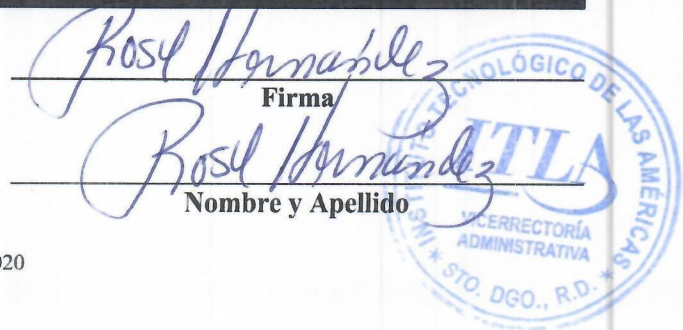 Rosy Hernández
Firma
Rosy Hernandez
Nombre y Apellido
INSTITUTO TECNOLÓGICO DE LAS AMÉRICAS
ITLA
VICERRECTORÍA
ADMINISTRATIVA
* STO. DGO., R.D. *
020